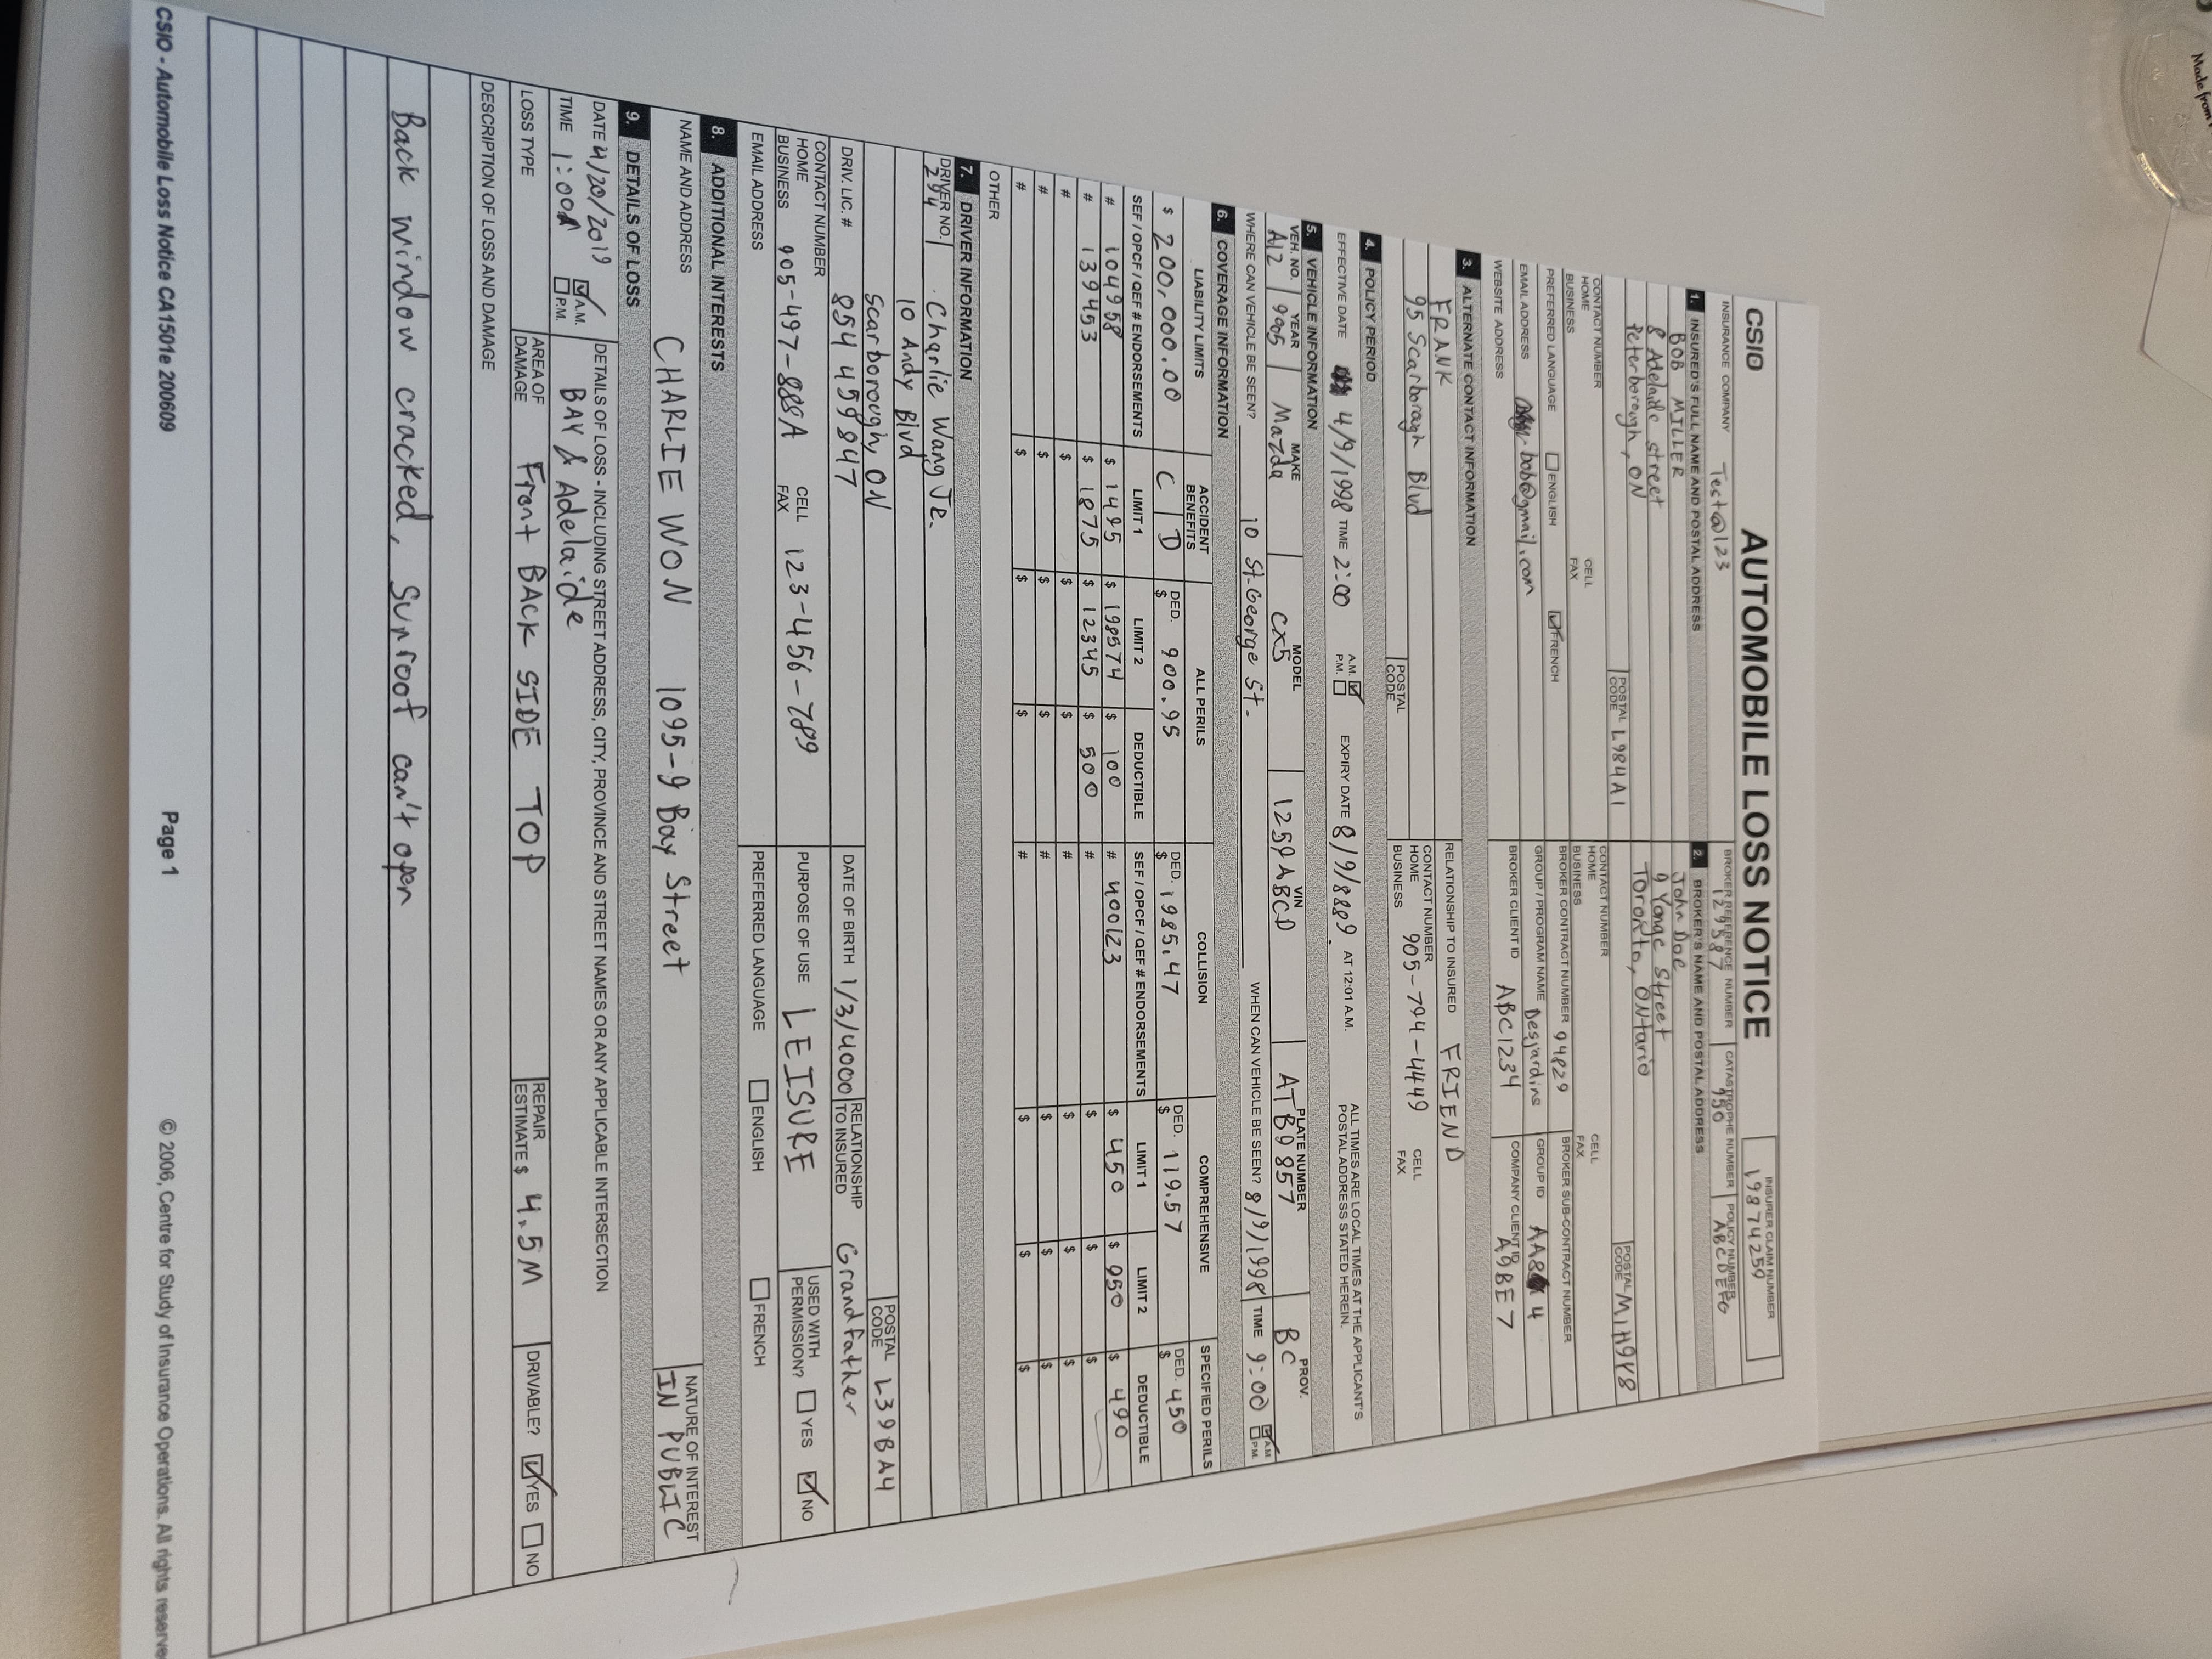 Made from
CSIO AUTOMOBILE LOSS NOTICE
INSURER CLAIM NUMBER
19874259
INSURANCE COMPANY Test@123
BROKER REFERENCE NUMBER CATASTROPHE NUMBER POLICY NUMBER
129587 950 ABCDEFG
1. INSURED'S FULL NAME AND POSTAL ADDRESS
BOB MILLER
8 Adelaide street
Peterborough, ON
POSTAL CODE L984A1
CONTACT NUMBER
HOME CELL
BUSINESS FAX
PREFERRED LANGUAGE ENGLISH FRENCH
EMAIL ADDRESS bob@gmail.com
WEBSITE ADDRESS
2. BROKER'S NAME AND POSTAL ADDRESS
John Doe
9 Yonge Street
Toronto, ONtario
POSTAL CODE M1H9V8
CONTACT NUMBER
HOME CELL
BUSINESS FAX
BROKER CONTRACT NUMBER 94829 BROKER SUB-CONTRACT NUMBER
GROUP / PROGRAM NAME Desjardins GROUP ID AA8 4
BROKER CLIENT ID ABC1234 COMPANY CLIENT ID A9BE7
3. ALTERNATE CONTACT INFORMATION
FRANK
95 Scarborough Blvd
POSTAL CODE
RELATIONSHIP TO INSURED FRIEND
CONTACT NUMBER
HOME 905-794-4449 CELL
BUSINESS FAX
4. POLICY PERIOD
EFFECTIVE DATE 4/9/1998 TIME 2:00 A.M. P.M. EXPIRY DATE 8/9/8889. AT 12:01 A.M.
ALL TIMES ARE LOCAL TIMES AT THE APPLICANT'S
POSTAL ADDRESS STATED HEREIN.
5. VEHICLE INFORMATION
VEH. NO. YEAR MAKE MODEL VIN PLATE NUMBER PROV.
A12 9005 Mazda CX5 1259ABCD ATB9857 BC
WHERE CAN VEHICLE BE SEEN? 10 St. George St. WHEN CAN VEHICLE BE SEEN? 8/9/1998 TIME 9:00 A.M. P.M.
6. COVERAGE INFORMATION
LIABILITY LIMITS ACCIDENT BENEFITS ALL PERILS COLLISION COMPREHENSIVE SPECIFIED PERILS
$ 200,000.00 C D DED. $ 900.95 DED. $ 1985.47 DED. $ 119.57 DED. $ 450
SEF / OPCF / QEF # ENDORSEMENTS LIMIT 1 LIMIT 2 DEDUCTIBLE SEF / OPCF / QEF # ENDORSEMENTS LIMIT 1 LIMIT 2 DEDUCTIBLE
# 104958 $ 1495 $ 198574 $ 100 # 400123 $ 450 $ 950 $ 490
# 139453 $ 1875 $ 12345 $ 500 # $ $ $
# $ $ $ # $ $ $
# $ $ $ # $ $ $
# $ $ $ # $ $ $
OTHER
7. DRIVER INFORMATION
DRIVER NO.
294 Charlie Wang Jr.
10 Andy Blvd
Scarborough, ON
POSTAL CODE L39BA4
DRIV. LIC. # 854459847 DATE OF BIRTH 1/3/4000 RELATIONSHIP TO INSURED Grandfather
CONTACT NUMBER
HOME CELL 123-456-789
BUSINESS 905-497-888A FAX
PURPOSE OF USE LEISURE USED WITH PERMISSION? YES NO
EMAIL ADDRESS PREFERRED LANGUAGE ENGLISH FRENCH
8. ADDITIONAL INTERESTS
NAME AND ADDRESS NATURE OF INTEREST
CHARLIE WON 1095-9 Bay Street IN PUBLIC
9. DETAILS OF LOSS
DATE 4/20/2019 DETAILS OF LOSS - INCLUDING STREET ADDRESS, CITY, PROVINCE AND STREET NAMES OR ANY APPLICABLE INTERSECTION
TIME 1:00 A.M. P.M. BAY & Adelaide
LOSS TYPE AREA OF DAMAGE Front BACK SIDE TOP REPAIR ESTIMATE $ 4.5M DRIVABLE? YES NO
DESCRIPTION OF LOSS AND DAMAGE
Back window cracked, Sunroof can't open
CSIO - Automobile Loss Notice CA1501e 200609 Page 1 © 2006, Centre for Study of Insurance Operations. All rights reserve